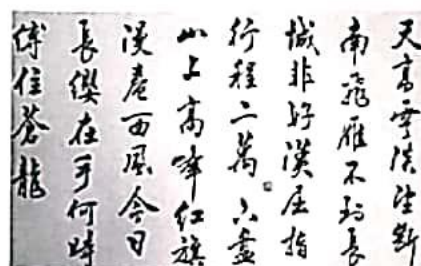 天高雲淡望斷
南飛雁不到長
城非好漢屈指
行程二萬六盤
山上高峰紅旗
漫卷西風今日
長纓在手何時
縛住蒼龍